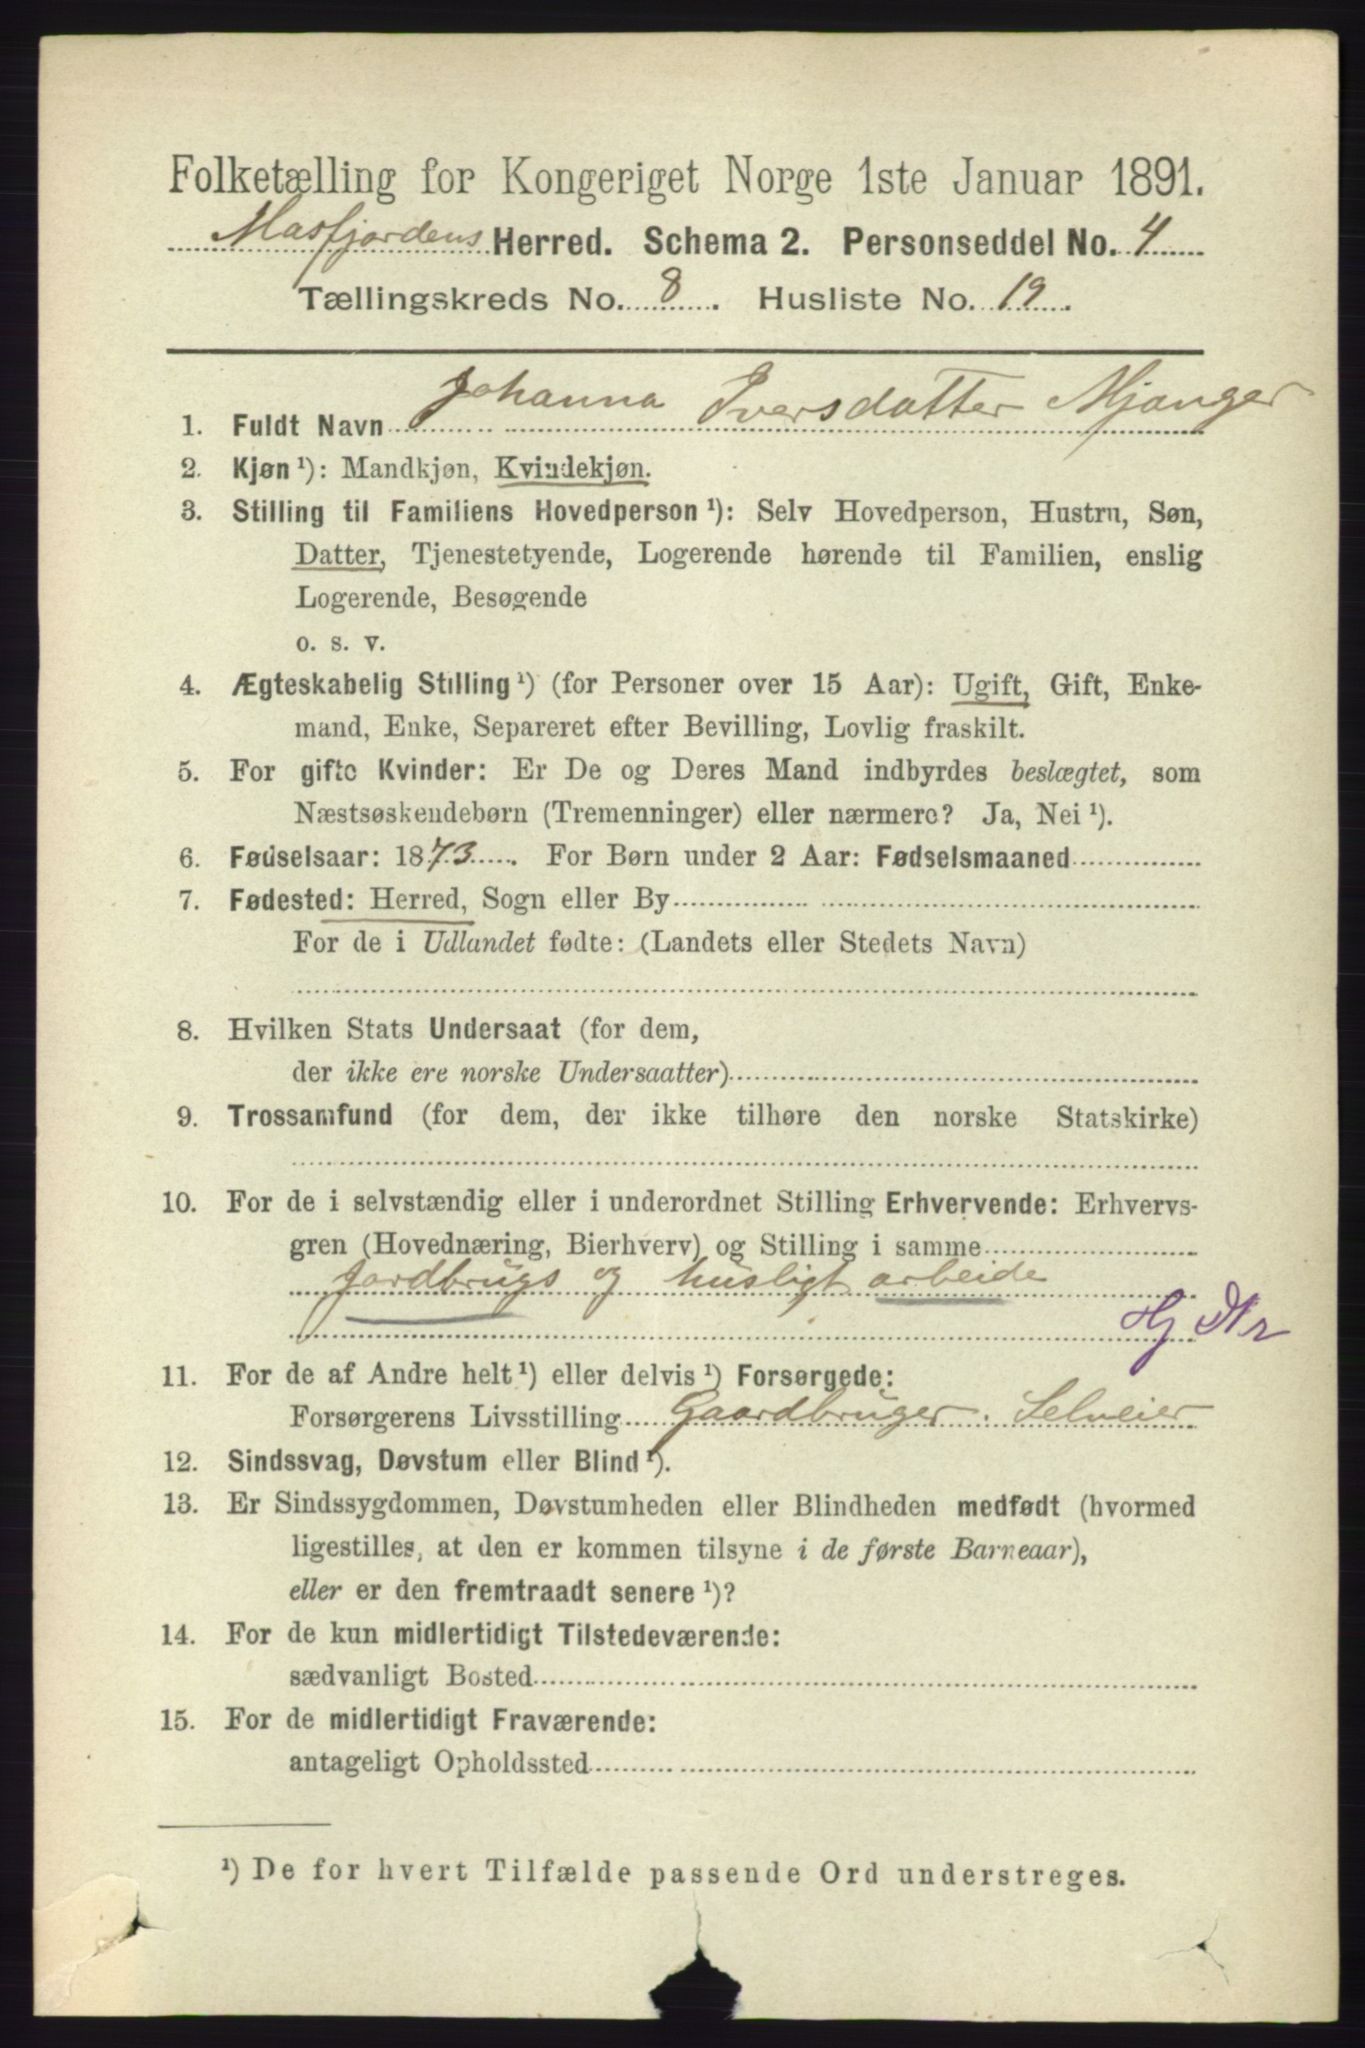 Folketælling for Kongeriget Norge 1ste Januar 1891.
Masfjordens Herred. Schema 2. Personseddel No. 4
Tællingskreds No. 8. Husliste No. 19.
1. Fuldt Navn Johanna Iversdatter Mjanger
2. Kjøn ¹): Mandkjøn, Kvindekjøn.
3. Stilling til Familiens Hovedperson ¹): Selv Hovedperson, Hustru, Søn,
Datter, Tjenestetyende, Logerende hørende til Familien, enslig
Logerende, Besøgende
o. s. v.
4. Ægteskabelig Stilling ¹) (for Personer over 15 Aar): Ugift, Gift, Enke-
mand, Enke, Separeret efter Bevilling, Lovlig fraskilt.
5. For gifte Kvinder: Er De og Deres Mand indbyrdes beslægtet, som
Næstsøskendebørn (Tremenninger) eller nærmere? Ja, Nei ¹).
6. Fødselsaar: 1873. For Børn under 2 Aar: Fødselsmaaned
7. Fødested: Herred, Sogn eller By
For de i Udlandet fødte: (Landets eller Stedets Navn)
8. Hvilken Stats Undersaat (for dem,
der ikke ere norske Undersaatter)
9. Trossamfund (for dem, der ikke tilhøre den norske Statskirke)
10. For de i selvstændig eller i underordnet Stilling Erhvervende: Erhvervs-
gren (Hovednæring, Bierhverv) og Stilling i samme
Jordbrugs og husligt arbeide
Hj Dtr
11. For de af Andre helt ¹) eller delvis ¹) Forsørgede:
Forsørgerens Livsstilling Gaardbruger. Selveier
12. Sindssvag, Døvstum eller Blind ¹).
13. Er Sindssygdommen, Døvstumheden eller Blindheden medfødt (hvormed
ligestilles, at den er kommen tilsyne i de første Barneaar),
eller er den fremtraadt senere ¹)?
14. For de kun midlertidigt Tilstedeværende:
sædvanligt Bosted
15. For de midlertidigt Fraværende:
antageligt Opholdssted
¹) De for hvert Tilfælde passende Ord understreges.